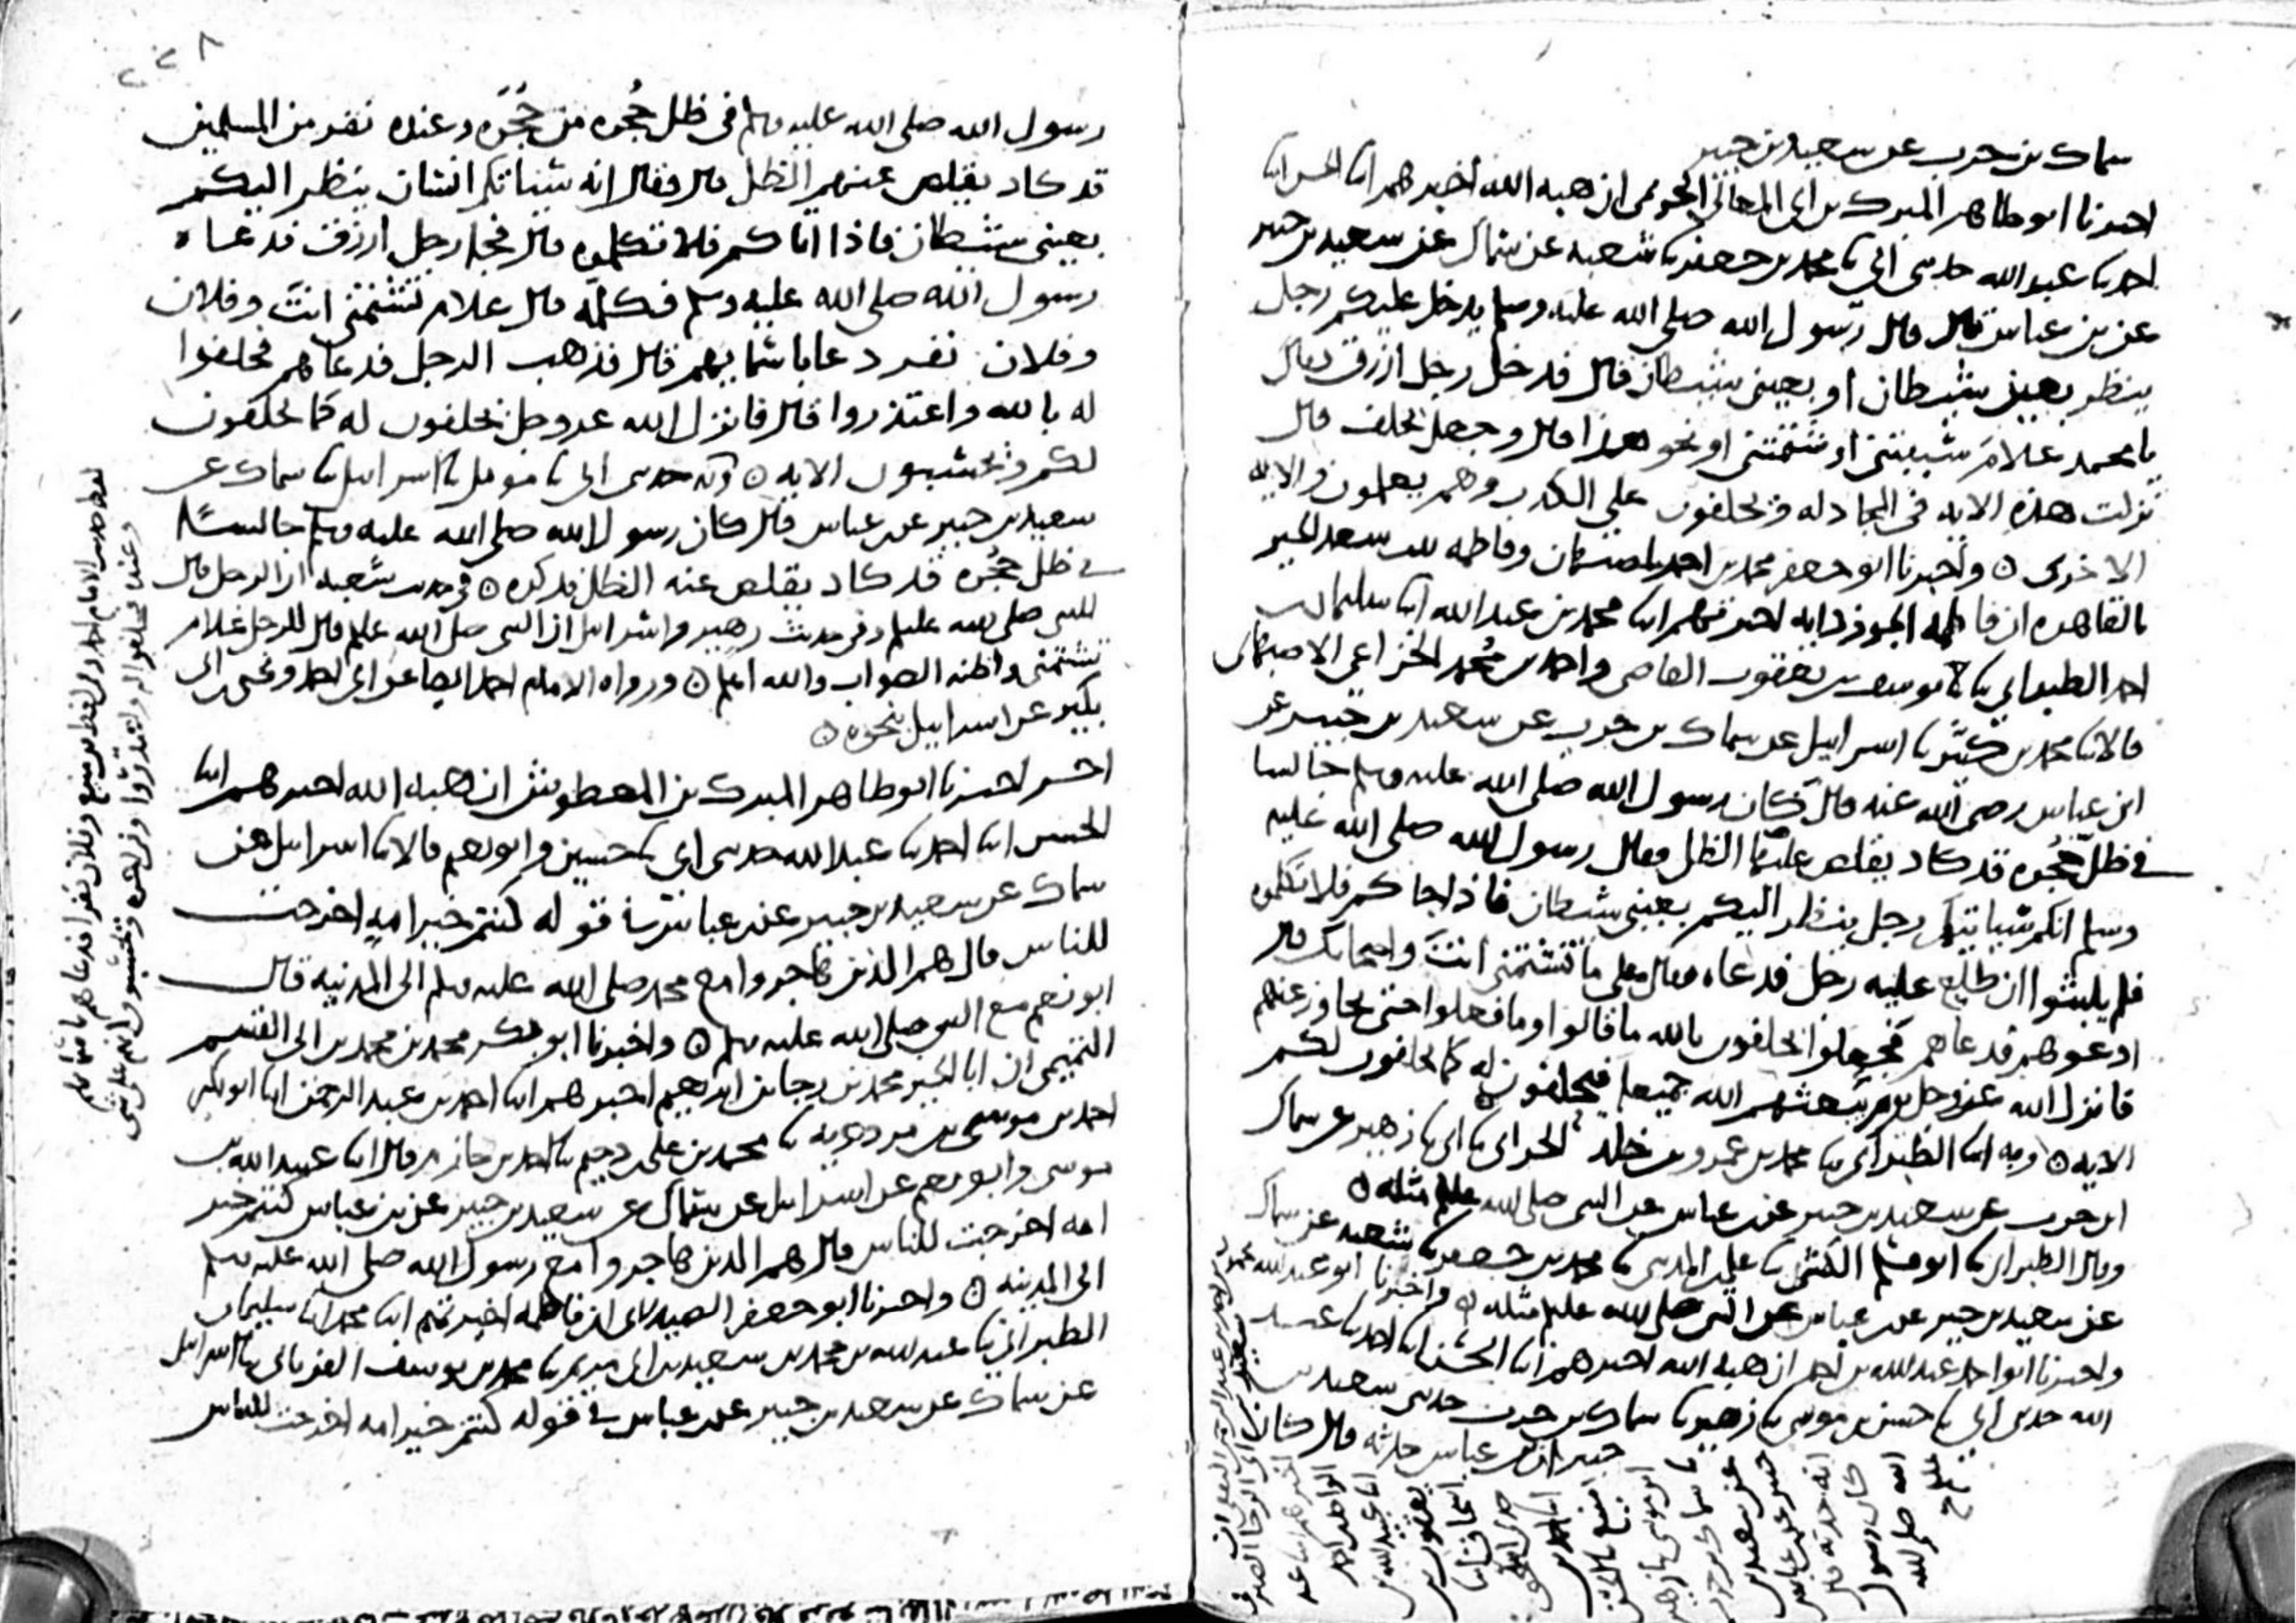 سماك بن حرب عن سعيد بن جبير
اخبرنا ابو طاهر المبرك بن ابي المعالي الحريمي ان هبه الله اخبرهم ابنا الحسن ابنا
احمد ثنا عبد الله حدثني ابي ثنا محمد بن جعفر ثنا شعبه عن سماك عن سعيد بن جبير
عن بن عباس قال قال رسول الله صلى الله عليه وسلم يدخل عليكم رجل
ينظر بعين شيطان او بعيني شيطان قال فدخل رجل ازرق فقال
يا محمد علام سببتني او شتمتني او نحو هذا قال وجعل يحلف قال
نزلت هذه الايه في المجادله ويحلفون على الكذب وهم يعلمون والايه
الاخرى ۞ واخبرنا ابو جعفر محمد بن احمد باصبهان وفاطمه بنت سعد الخير
بالقاهره ان فاطمه الجوزدانيه اخبرتهم ابنا محمد بن عبد الله ابنا سليمان بن
احمد الطبراني ثنا يوسف بن يعقوب القاضي واحمد بن محمد الخزاعي الاصبهاني
قالا ثنا محمد بن كثير ثنا اسرايل عن سماك بن حرب عن سعيد بن جبير عن
ابن عباس رضي الله عنه قال كان رسول الله صلى الله عليه وسلم جالسا
في ظل حجره قد كاد يقلص عليه الظل فقال رسول الله صلى الله عليه
وسلم انكم سياتيكم رجل ينظر اليكم بعيني شيطان فاذا جاكم فلا تكلموه
فلم يلبثوا ان طلع عليه رجل فدعاه فقال على ما تشتمني انت واصحابك قال
ادعوهم فدعاهم فجعلوا يحلفون بالله ما قالوا وما فعلوا حتى تجاوز عنهم
فانزل الله عز وجل يوم يبعثهم الله جميعا فيحلفون له كما يحلفون لكم
الايه ۞ وبه ابنا الطبراني ثنا محمد بن عمرو بن خلد الحراني ثنا ابي ثنا زهير عن سماك
ابن حرب عن سعيد بن جبير عن بن عباس عن النبي صلى الله عليه مثله ۞
وقال الطبراني ثنا ابو مسلم الكشي ثنا علي المديني ثنا محمد بن جعفر ثنا شعبه عن سماك
عن سعيد بن جبير عن بن عباس عن النبي صلى الله عليه مثله ۞ واخبرنا ابو عبد الله محمود
واخبرنا ابو احمد عبد الله بن احمد ان هبه الله اخبرهم ابنا الحسن ابنا احمد ثنا عبد
الله حدثني ابي ثنا حسن بن موسى ثنا زهير ثنا سماك بن حرب حدثني سعيد بن
جبير ان بن عباس حدثه قال كان
٢٢٨
رسول الله صلى الله عليه وسلم في ظل حجره من حجره وعنده نفر من المسلمين
قد كاد يقلص عنهم الظل قال فقال انه سياتيكم انسان ينظر اليكم
بعيني شيطان فاذا اتاكم فلا تكلموه قال فجا رجل ازرق فدعاه
رسول الله صلى الله عليه وسلم فكلمه قال علام تشتمني انت وفلان
وفلان نفر دعا باسمايهم قال فذهب الرجل فدعاهم فحلفوا
له بالله واعتذروا قال فانزل الله عز وجل يحلفون له كما يحلفون
لكم ويحسبون الايه ۞ وبه حدثني ابي ثنا مومل ثنا اسرايل ثنا سماك عن
سعيد بن جبير عن بن عباس قال كان رسول الله صلى الله عليه وسلم جالسا
في ظل حجره قد كاد يقلص عنه الظل فذكره ۞ في حديث شعبه ان الرجل قال
للنبي صلى الله عليه وفي حديث زهير واسرايل ان النبي صلى الله عليه قال للرجل علام
تشتمني واظنه الصواب والله اعلم ۞ ورواه الامام احمد ايضا عن ابي احمد ويحيى بن ابي
بكير عن اسرايل بنحوه ۞
اخر اخبرنا ابو طاهر المبرك بن المعطوش ان هبه الله اخبرهم ابنا
الحسن ابنا احمد ثنا عبد الله حدثني ابي ثنا حسين وابو نعيم قالا ثنا اسرايل عن
سماك عن سعيد بن جبير عن بن عباس في قوله كنتم خير امه اخرجت
للناس قال هم الذين هاجروا مع محمد صلى الله عليه وسلم الى المدينه قال
ابو نعيم مع النبي صلى الله عليه وسلم ۞ واخبرنا ابو بكر محمد بن محمد بن ابي القسم
التميمي ان ابا الخير محمد بن رجا بن ابرهيم اخبرهم ابنا احمد بن عبد الرحمن ابنا ابو بكر
احمد بن موسى بن مردويه ثنا محمد بن علي بن دحيم ثنا احمد بن حازم قال ابنا عبيد الله بن
موسى وابو نعيم عن اسرايل عن سماك عن سعيد بن جبير عن بن عباس كنتم خير
امه اخرجت للناس قال هم الذين هاجروا مع رسول الله صلى الله عليه وسلم
الى المدينه ۞ واخبرنا ابو جعفر الصيدلاني ان فاطمه اخبرتهم ابنا محمد ابنا سليمان
الطبراني ثنا عبد الله بن محمد بن سعيد بن ابي مريم ثنا محمد بن يوسف الفريابي ثنا اسرايل
عن سماك عن سعيد بن جبير عن بن عباس في قوله كنتم خير امه اخرجت للناس